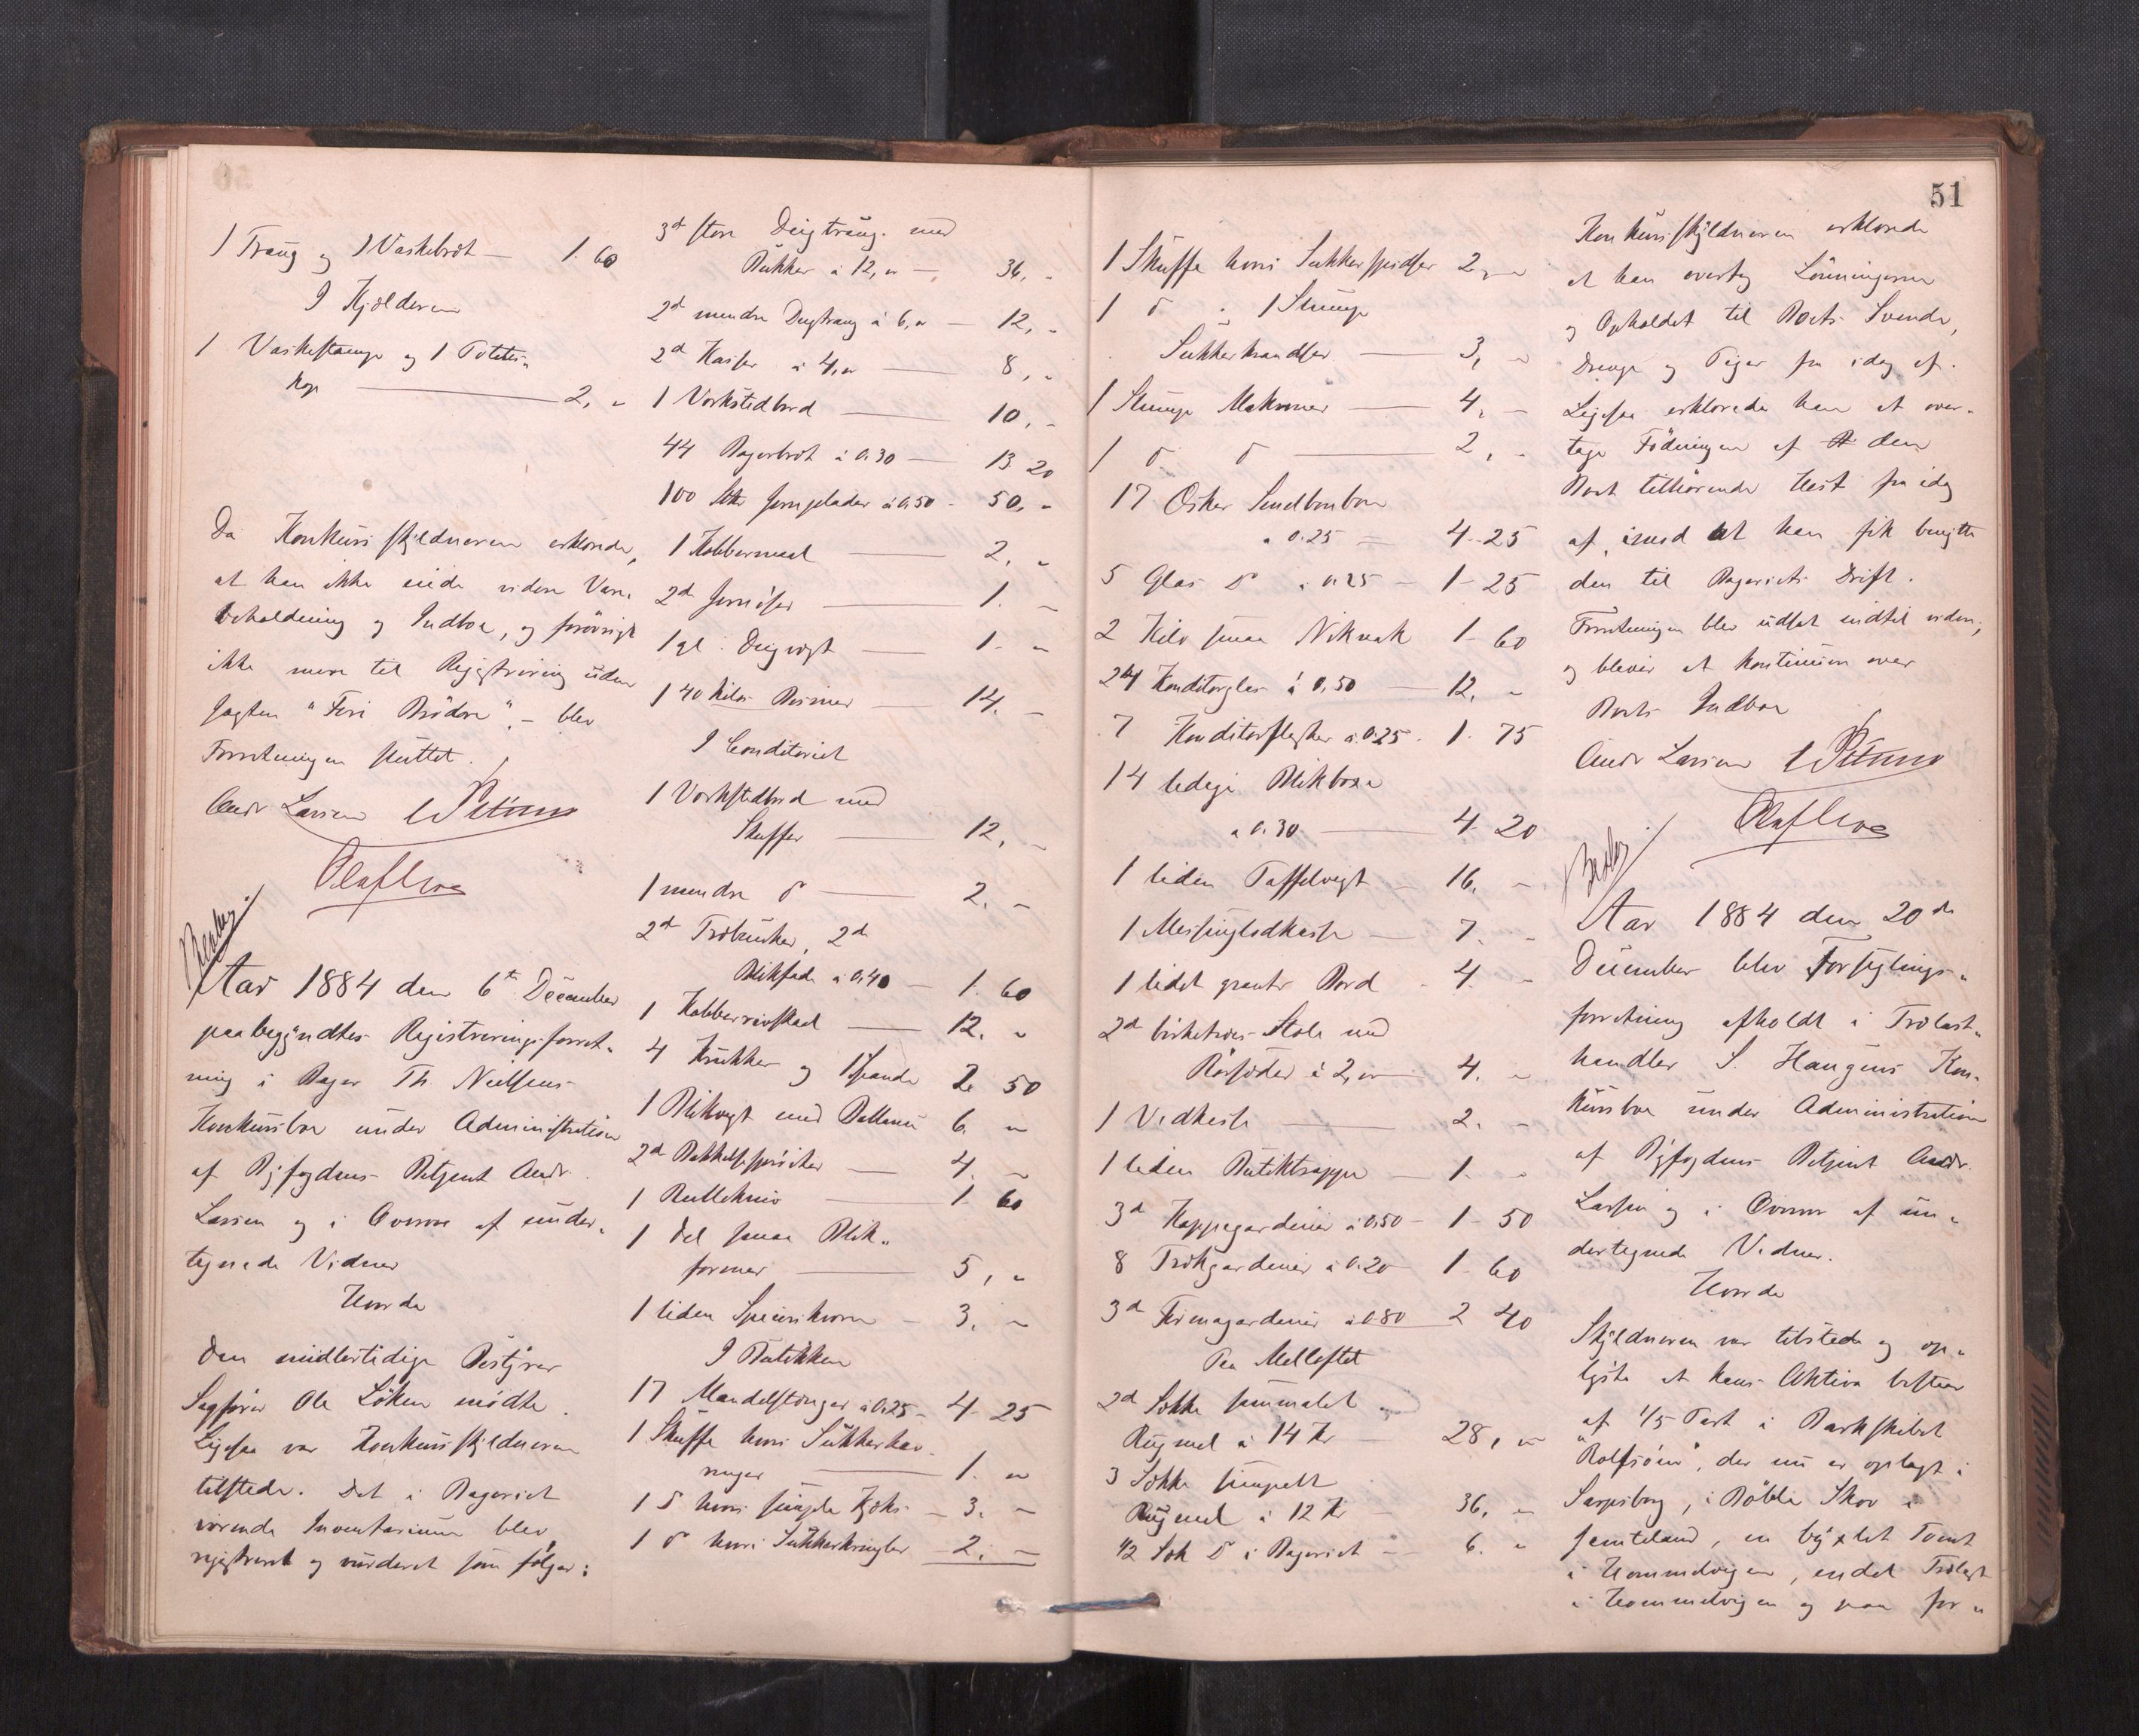 1 Traug og 1 Vaskebræt — 1. 60
I Kjælderen
1 Vaskestampe og 1 Potetes„
kop — 2, „
Da Konkursskyldneren erklærede,
at han ikke eiede videre Vare„
beholdning og Indboe, og forøvrigt
ikke mere til Registrering uden
Jagten "Fire Brødre", – blev
Forretningen sluttet.
Andr Larsen
Aar 1884 den 6te December
paabegyndtes Registreringsforret„
ning i Bager Th. Nielsens
Konkursboe under Administration
af Byfogdens Betjent Andr.
Larsen og i Overvær af under„
tegnede Vidner
Hvorda
Den midlertidige Bestyrer
Sagfører Ole Løken mødte.
Ligesaa var Konkursskyldneren
tilstede. Det i Bageriet
værende Inventarium blev
registreret og vurderet som følger:
3de store Deigtraug med
Bukker à 12, „ — 36, „
2de mindre Deigtraug à 6, „ — 12, „
2de Kasser à 4, „ — 8, „
1 Værkstedbord — 10, „
44 Bagerbræt à 0.30 — 13. 20
100 Stkr Jernplader à 0.50 – 50, „
1 Kobbermaal — 2, „
2de Jernøser — 1. „
1 gl. Deigvægt — 1. „
1 40 Kilos Bismer — 14. „
I Conditoriet
1 Værkstedbord med
Skuffer — 12, „
1 mindre do — 2. „
2de Træbunker, 2de
Blikfade à 0.40 — 1. 60
1 Kobberrivskaal — 12. „
4 Krukker og 1 Spand 2. 50
1 Blikvægt med Ballance 6. „
2de Bakkelsesprøiter — 4. „
1 Rullekniv — 1. 60
1 Del smaa Blik„
former — 5, „
1 liden Specerikværn — 3. „
I Butikken
17 Mandelstænger à 0.25 – 4. 25
1 Skuffe hvori Sukkerkav„
ringer — 1. „
1 do hvori simple Kjæks – 3. „
1 do hvori Sukkerkringler – 2. „
51
1 Skuffe hvori Sukkerspidser 2, „
1 do „ 1 Slump
Sukkerkrandser — 3, „
1 Slump Makroner — 4, „
1 do do — 2, „
17 Æsker Smelbonbon
à 0.25 — 4. 25
5 Glas do à 0.25 – 1. 25
2 Kilo smaa Niknak 1. 60
24 Konditorglas à 0,50 — 12. „
7 Konditorflasker à 0.25 . 1. 75
14 ledige Blikboxe
à 0.30 — 4. 20
1 liden Taffelvægt — 16. „
1 Messinglodkasse — 7. „
1 lidet graat Bord – 4. „
2de birketræes Stole med
Rørsæder à 2, „ — 4. „
1 Vedkasse — 2. „
1 liden Butiktrappe — 1. „
3de Kappegardiner à 0.50 – 1. 50
8 Trækgardiner à 0.20 1. 60
3de Firmagardiner à 0.80 2 40
Paa Melloftet
2de Sække sammalet
Rugmel à 14 Kr — 28, „
3 Sække simpelt
Rugmel à 12 Kr – 36, „
1/2 Sæk do i Bageriet — 6. „
Konkursskyldneren erklærede
at han overtog Lønningerne
og Opholdet til Boets Svende,
Drenge og Piger fra idag af.
Ligesaa erklærede han at over„
tage Fødningen af den
Boet tilhørende Hest fra idag
af, imod at han fik benytte
den til Bageriets Drift.
Forretningen blev udsat indtil videre,
og bliver at kontinuere over
Boets Indboe
Andr Larsen
Aar 1884 den 20de
December blev Forseglings„
forretning afholdt i Trælast„
handler S. Haugens Kon„
kursboe under Administration
af Byfogdens Betjent Andr.
Larsen og i Overvær af un„
dertegnede Vidner.
Hvorda
Skyldneren var tilstede og op„
lyste at hans Aktiva bestaar
af 1/5 Part i Barkskibet
"Rolfsøen", der nu er oplagt i
Sarpsborg, i Skov i
Jemteland, en byxlet Tomt
i Hommelvigen, endel Trælast
i Hommelvigen og paa for„